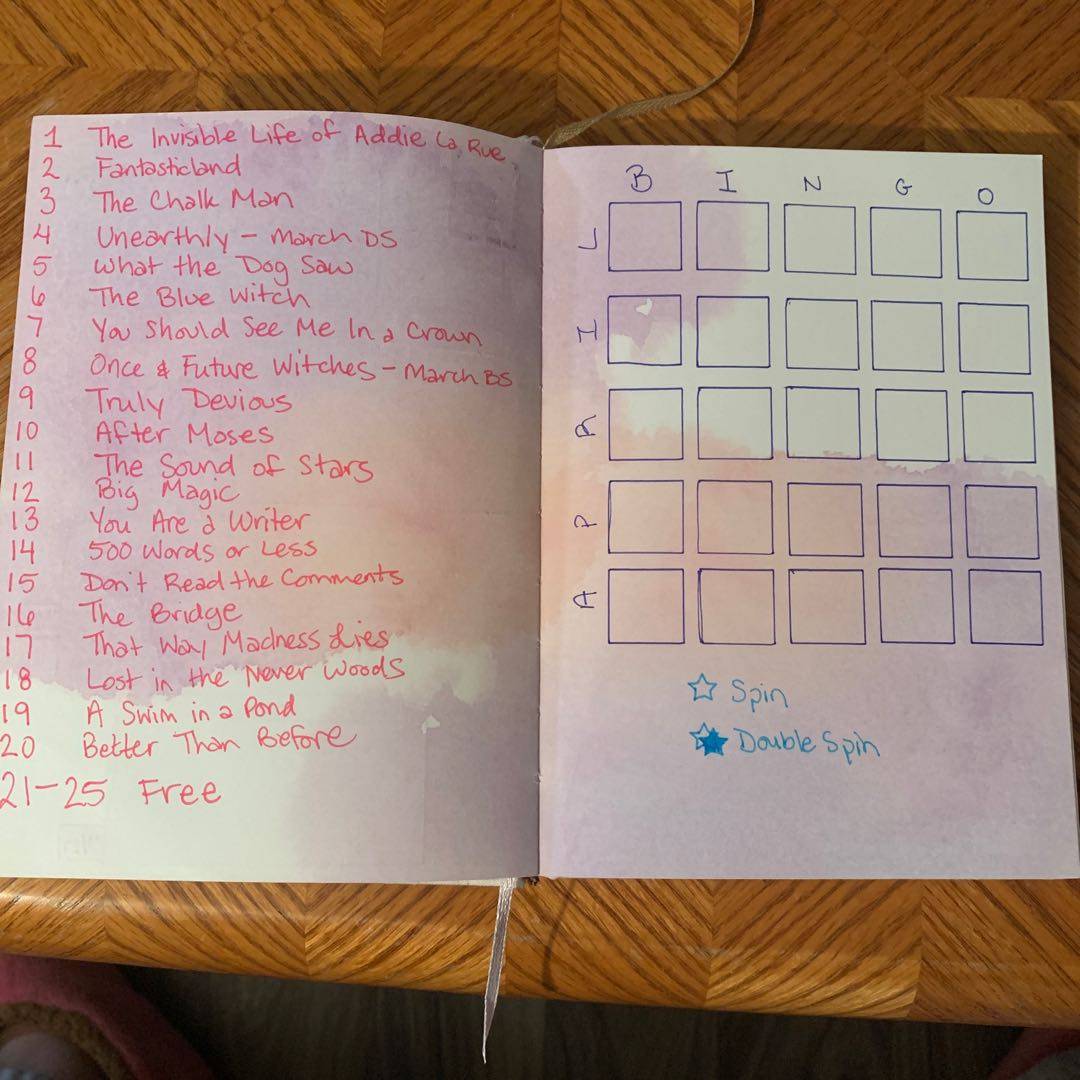 1 The Invisible Life of Addie La Rue
2 Fantasticland
3 The Chalk Man
4 Unearthly - March DS
5 What the Dog Saw
6 The Blue Witch
7 You Should See Me In a Crown
8 Once & Future Witches - March BS
9 Truly Devious
10 After Moses
11 The Sound of Stars
12 Big Magic
13 You Are a Writer
14 500 Words or Less
15 Don't Read the Comments
16 The Bridge
17 That Way Madness Lies
18 Lost in the Never Woods
19 A Swim in a Pond
20 Better Than Before
21-25 Free
B I N G O
L
I
R
P
A
Spin
Double Spin